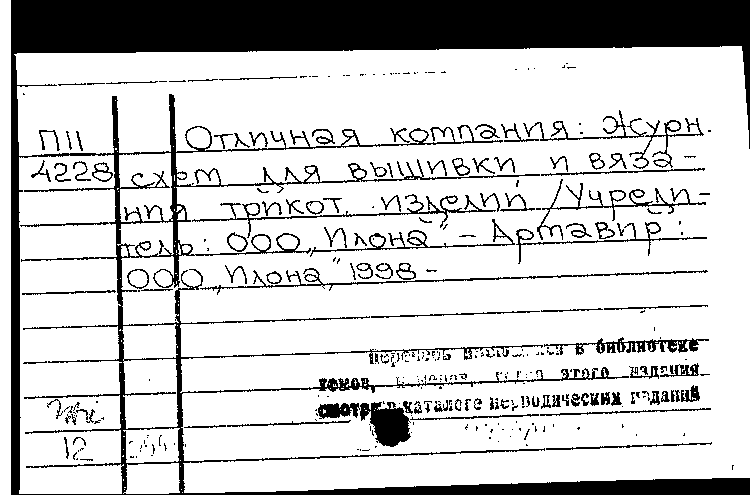 П11 Отличная компания: Журн.
4228 схем для вышивки и вяза-
ния трикот. изделий / Учреди-
тель: ООО "Илона". - Артавир:
ООО "Илона", 1998 -
Перечень имеющихся в библиотеке
томов, номеров, годов этого издания
смотри в каталоге периодических изданий
12